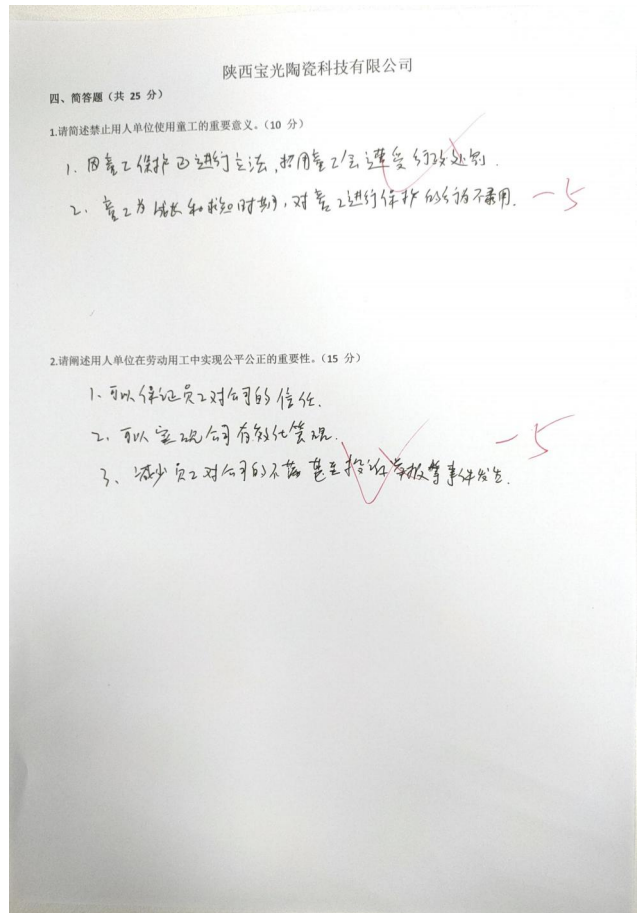 陕西宝光陶瓷科技有限公司
四、简答题（共 25 分）
1.请简述禁止用人单位使用童工的重要意义。（10 分）
1. 因童工保护已进行立法，招用童工会遭受行政处罚.
2、童工为成长和求知时期，对童工进行保护的行为不录用.
-5
2.请阐述用人单位在劳动用工中实现公平公正的重要性。（15 分）
1、可以保证员工对公司的信任.
2、可以实现公司有效化管理.
-5
3、减少员工对公司的不满甚至投诉举报等事件发生.